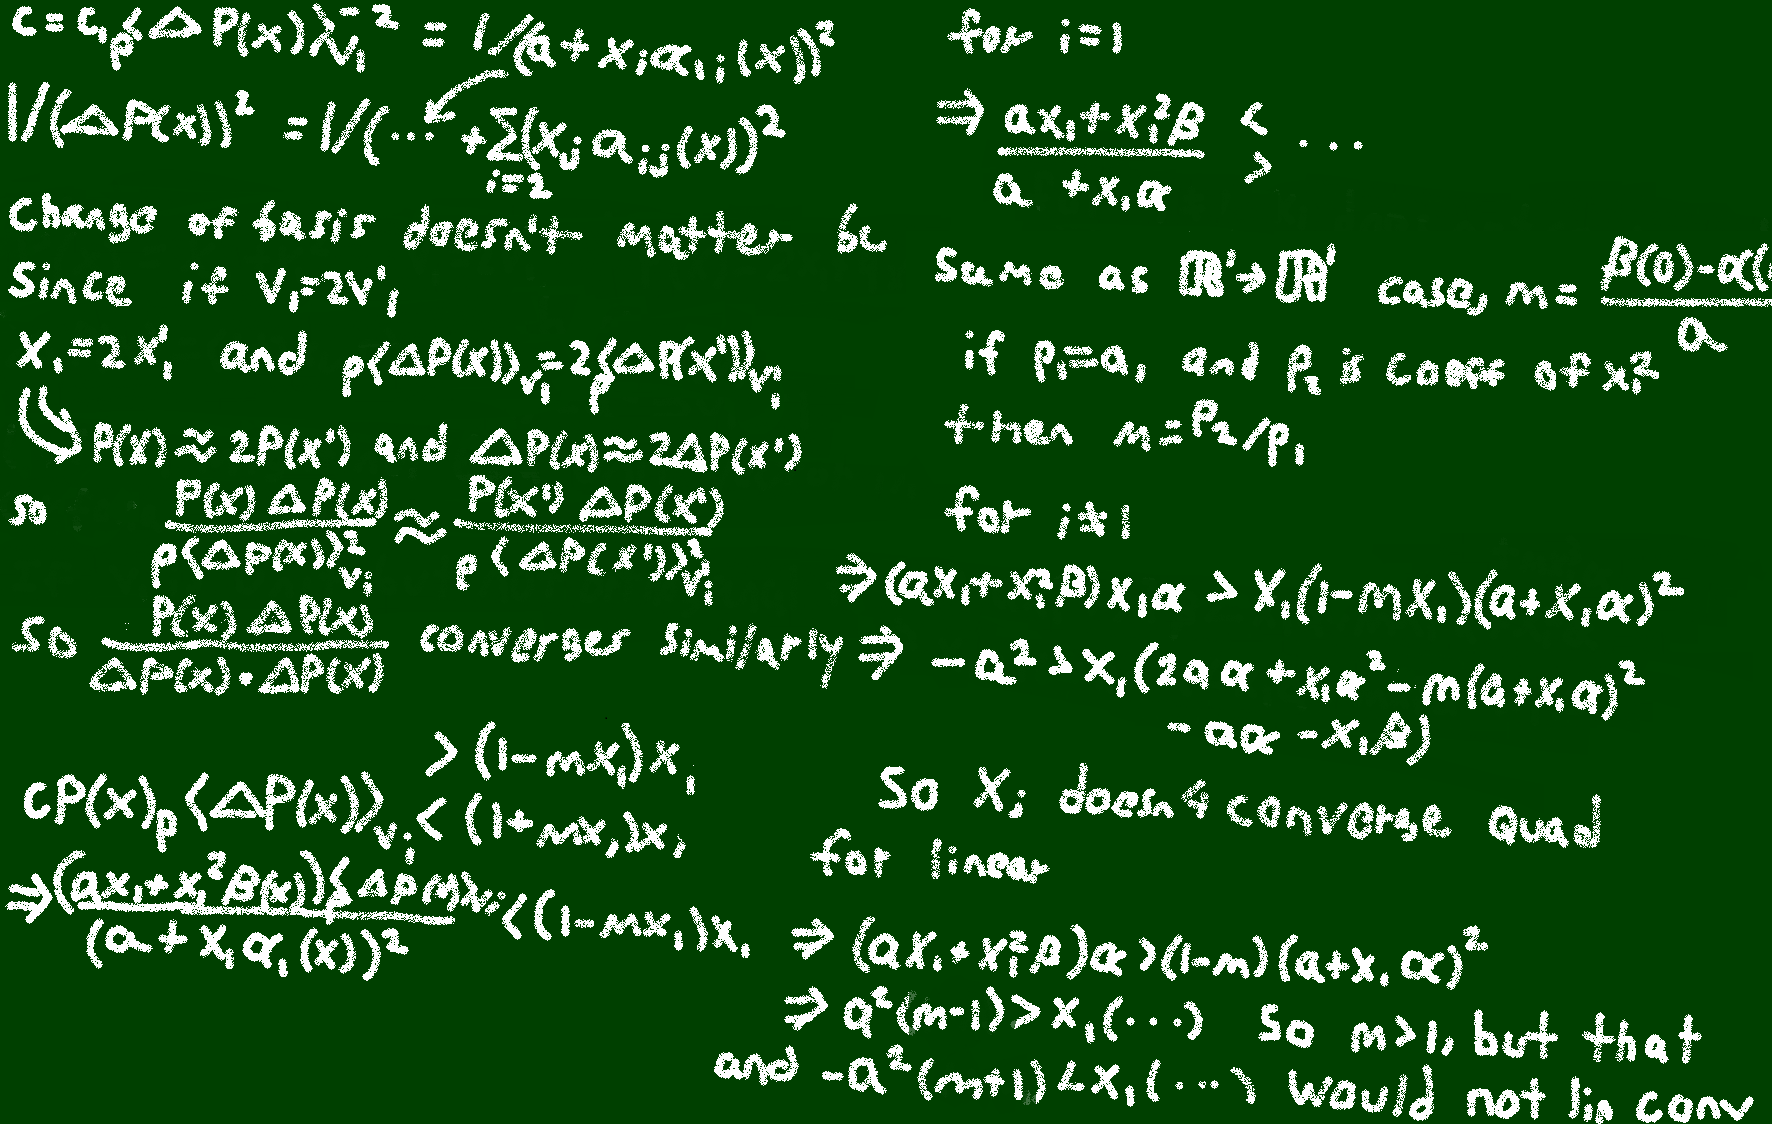 c = c₁ₚ⟨ΔP(x)⟩ᵥ₁⁻² = 1/(a + xᵢα₁ᵢ(x))²
1/(ΔP(x))² = 1/(... + Σᵢ₌₂(xⱼaᵢⱼ(x))²
Change of basis doesn't matter bc
Since if v₁=2v'₁
x₁=2x'₁ and ₚ⟨ΔP(x)⟩ᵥ₁=2ₚ⟨ΔP(x')⟩ᵥ'₁
P(x)≈2P(x') and ΔP(x)≈2ΔP(x')
so P(x)ΔP(x)/ₚ⟨ΔP(x)⟩²ᵥᵢ ≈ P(x')ΔP(x')/ₚ⟨ΔP(x')⟩²ᵥᵢ
so P(x)ΔP(x)/ΔP(x)·ΔP(x) converges similarly
cP(x)ₚ⟨ΔP(x)⟩ᵥᵢ > (1-mx₁)x₁
< (1+mx₁)x₁
⇒ (ax₁+x₁²β(x))ₚ⟨ΔP(x)⟩ᵥᵢ/(a+x₁α₁(x))² < (1-mx₁)x₁
for i=1
⇒ ax₁+x₁²β/a+x₁α < > ...
Same as ℝ'→ℝ' case, m= β(0)-α(/a
if p₁=a, and p₂ is coeff of x₁²
then m=p₂/p₁
for i≠1
⇒(ax₁+x₁²β)x₁α > x₁(1-mx₁)(a+x₁α)²
⇒ -a² > x₁(2aα+x₁α²-m(a+x₁α)²
-aα-x₁β)
So xᵢ doesn't converge quad
for linear
⇒ (ax₁+x₁²β)α>(1-m)(a+x₁α)²
⇒ a²(m-1)>x₁(...) so m>1, but that
and -a²(m+1)<x₁(...) would not lin conv